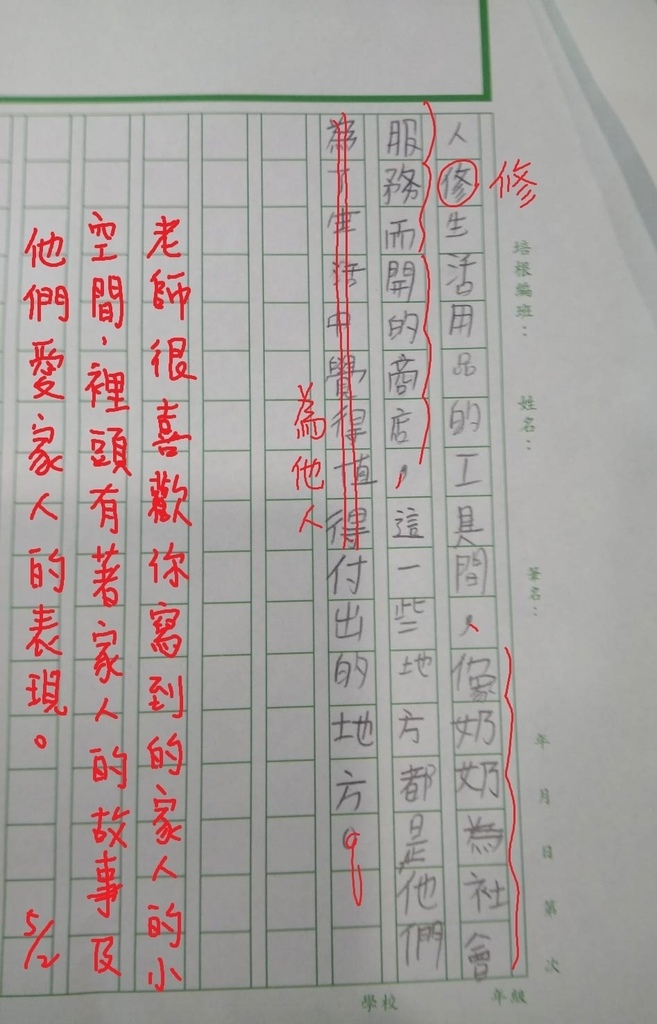 培根編班：
姓名：
筆名：
年 月 日 第 次
年級
學校
修
人修生活用品的工具間，像奶奶為社會
服務而開的商店，這一些地方都是他們
為了生活中覺得值得付出的地方。
為他人
老師很喜歡你寫到的家人的小
空間，裡頭有著家人的故事及
他們愛家人的表現。
5/2